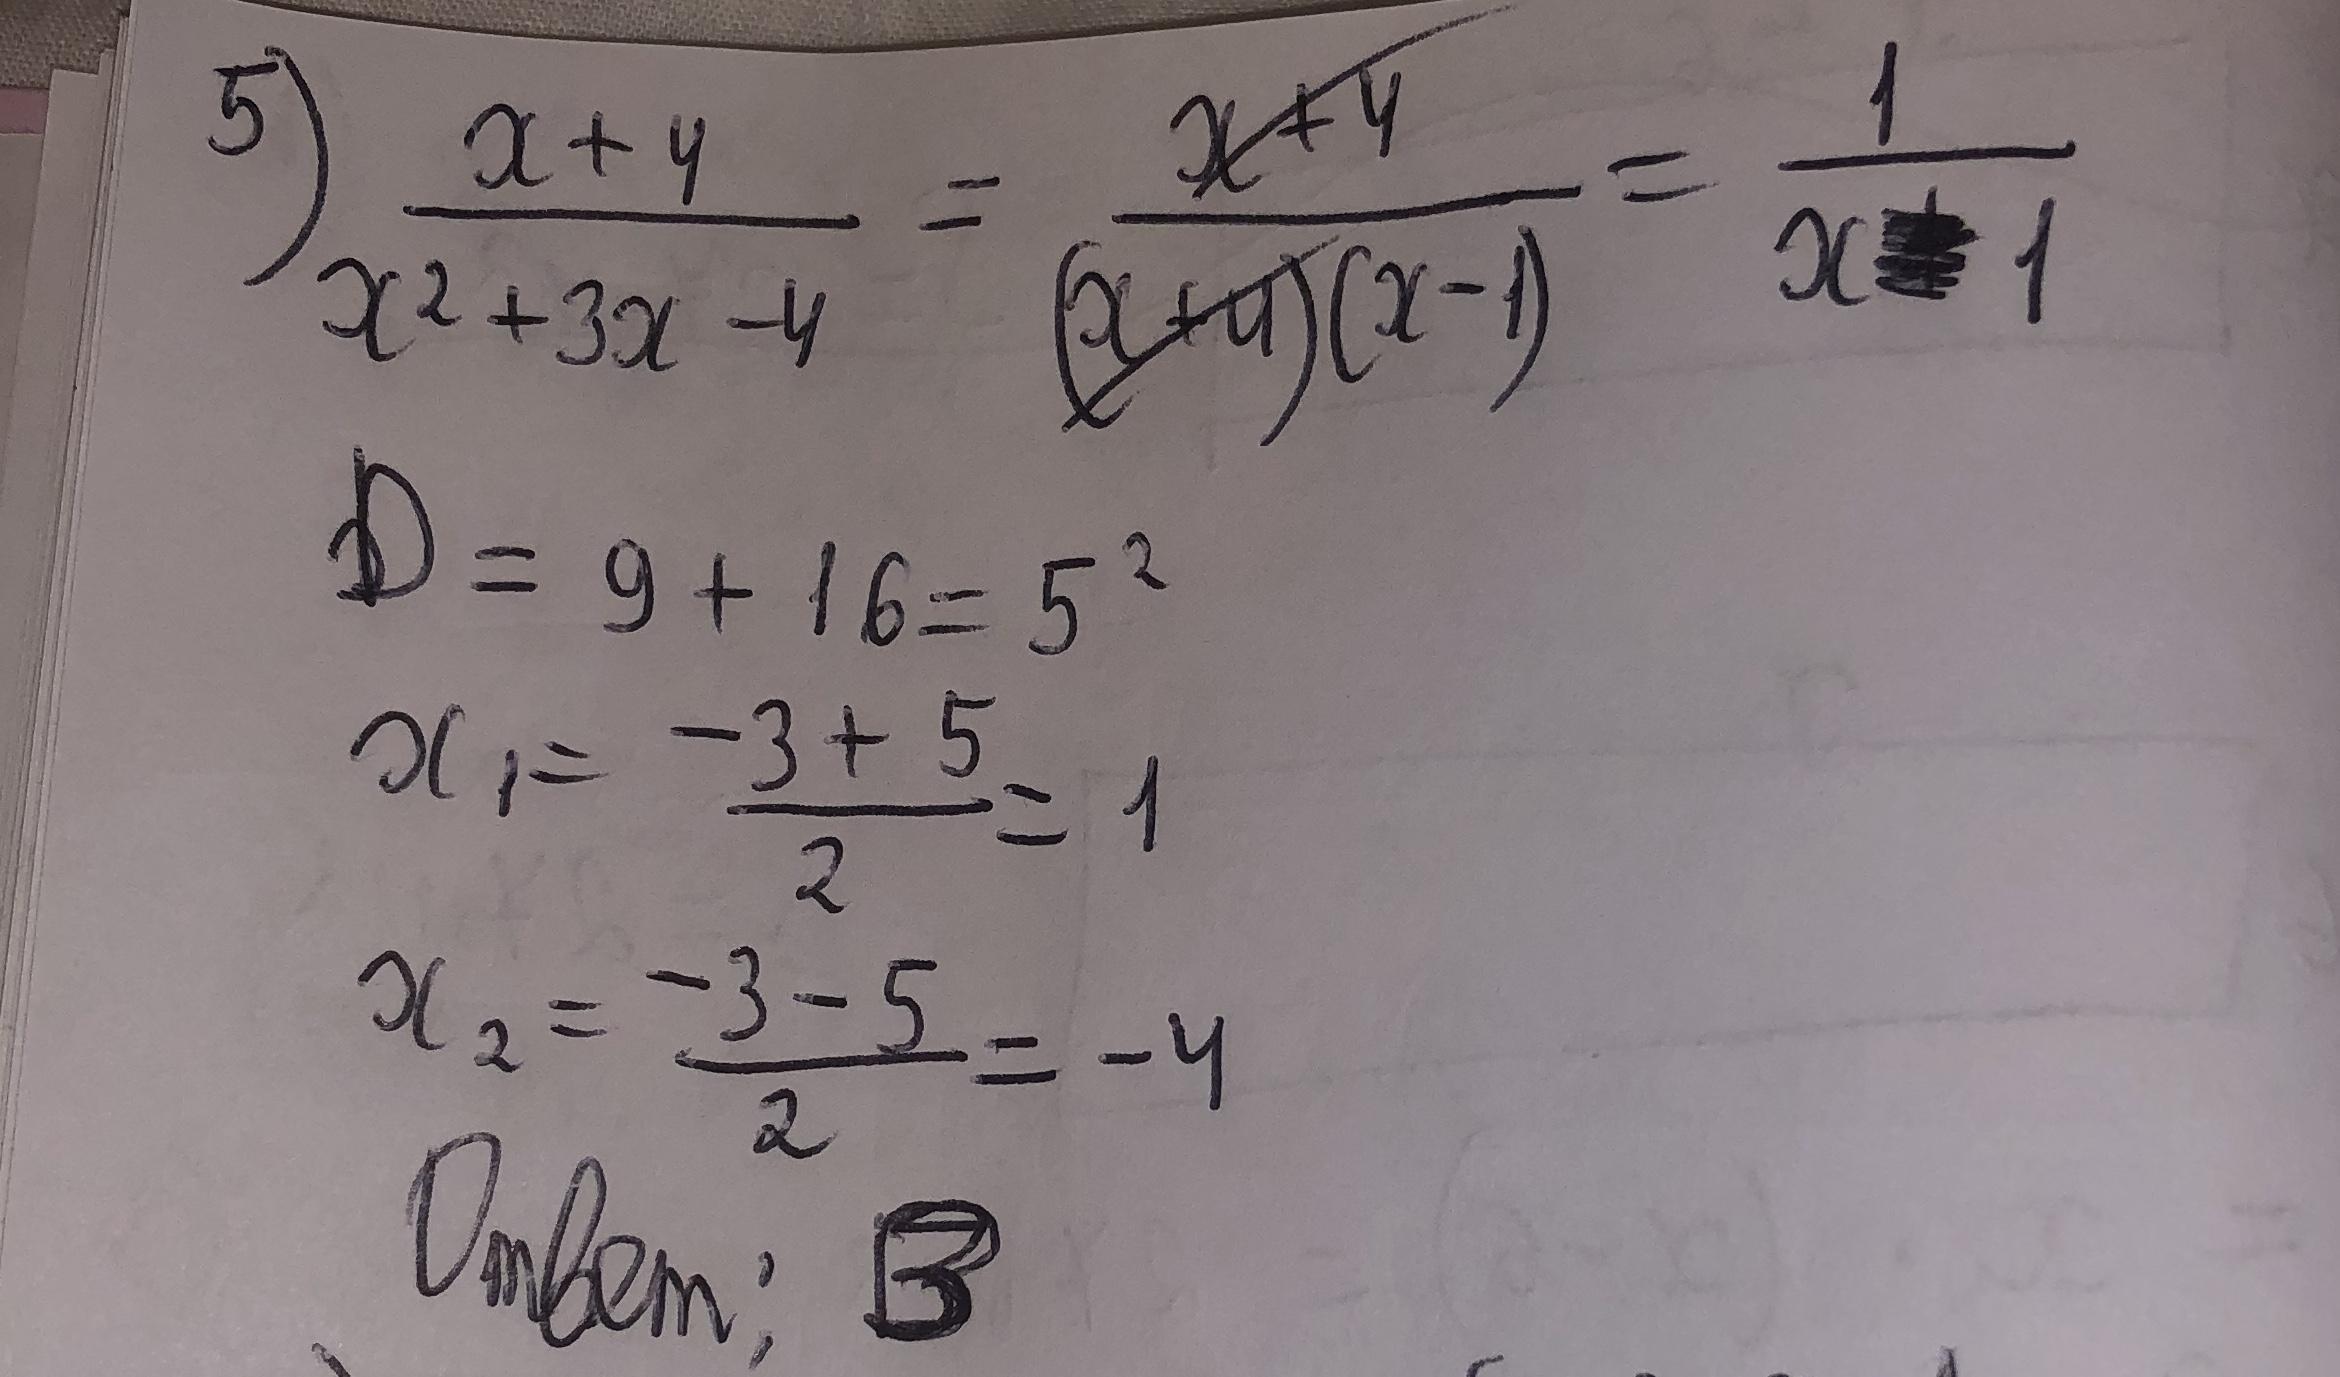 5) x+4 / x²+3x-4 = x+4 / (x+4)(x-1) = 1 / x-1
D = 9 + 16 = 5²
x₁ = -3+5 / 2 = 1
x₂ = -3-5 / 2 = -4
Ответ: В